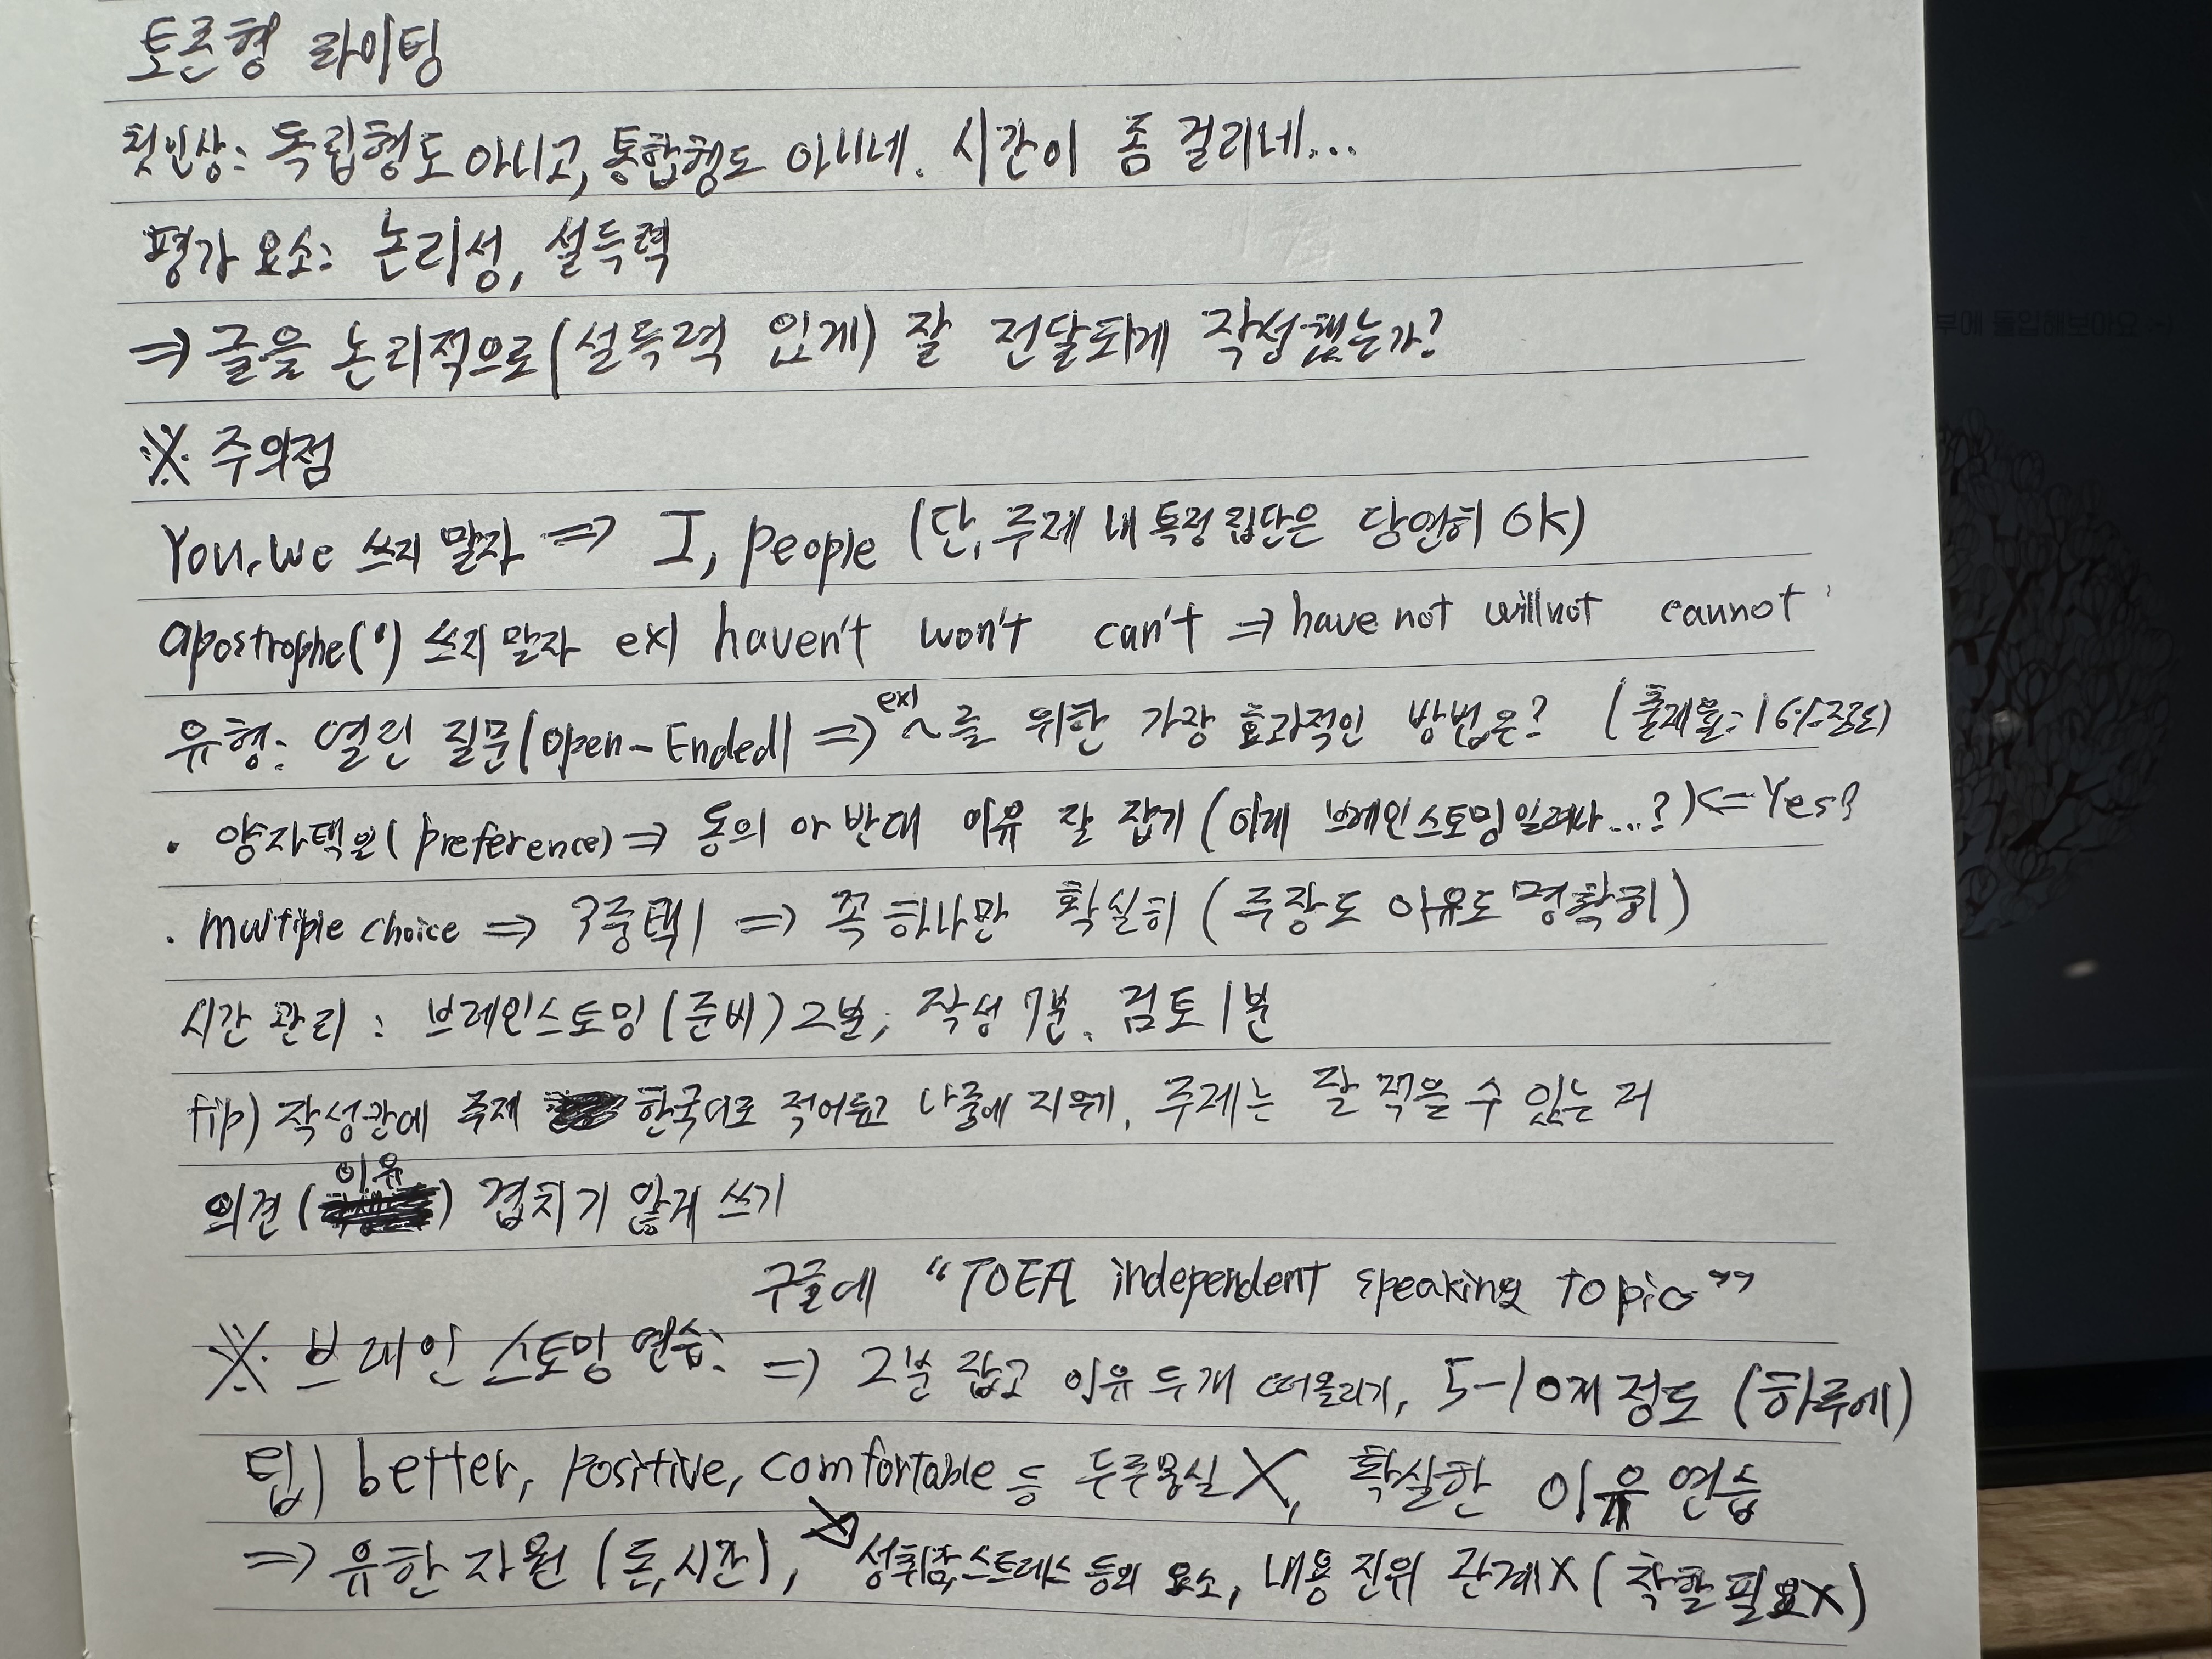 토론형 라이팅
첫인상: 독립형도 아니고, 통합형도 아니네. 시간이 좀 걸리네...
평가 요소: 논리성, 설득력
⇒ 글을 논리적으로(설득력 있게) 잘 전달되게 작성했는가?
※ 주의점
You, we 쓰지 말자 ⇒ I, people (단, 주제 내 특정 집단은 당연히 OK)
apostrophe(') 쓰지 말자 ex) haven't won't can't ⇒ have not will not cannot
유형: 열린 질문(Open-Ended) ⇒ ex) ~를 위한 가장 효과적인 방법은? (출제율: 16%정도)
· 양자택일(preference) ⇒ 동의 or 반대 이유 잘 잡기 (이게 브레인스토밍일려나...?) <= Yes?
· multiple choice ⇒ 3중택1 ⇒ 꼭 하나만 확실히 (주장도 이유도 명확히)
시간 관리 : 브레인스토밍(준비) 2분, 작성 7분, 검토 1분
tip) 작성란에 주제 한국어로 적어두고 나중에 지우기, 주제는 잘 적을 수 있는 거
의견(이유) 겹치기 않게 쓰기
구글에 “TOEFL independent speaking topic”
※ 브레인스토밍 연습: ⇒ 2분 잡고 이유 두개 떠올리기, 5-10개 정도 (하루에)
팁) better, positive, comfortable 등 두루뭉실 X, 확실한 이유 연습
⇒ 유한 자원 (돈, 시간), 성취감, 스트레스 등의 요소, 내용 진위 관계X (착할 필요X)